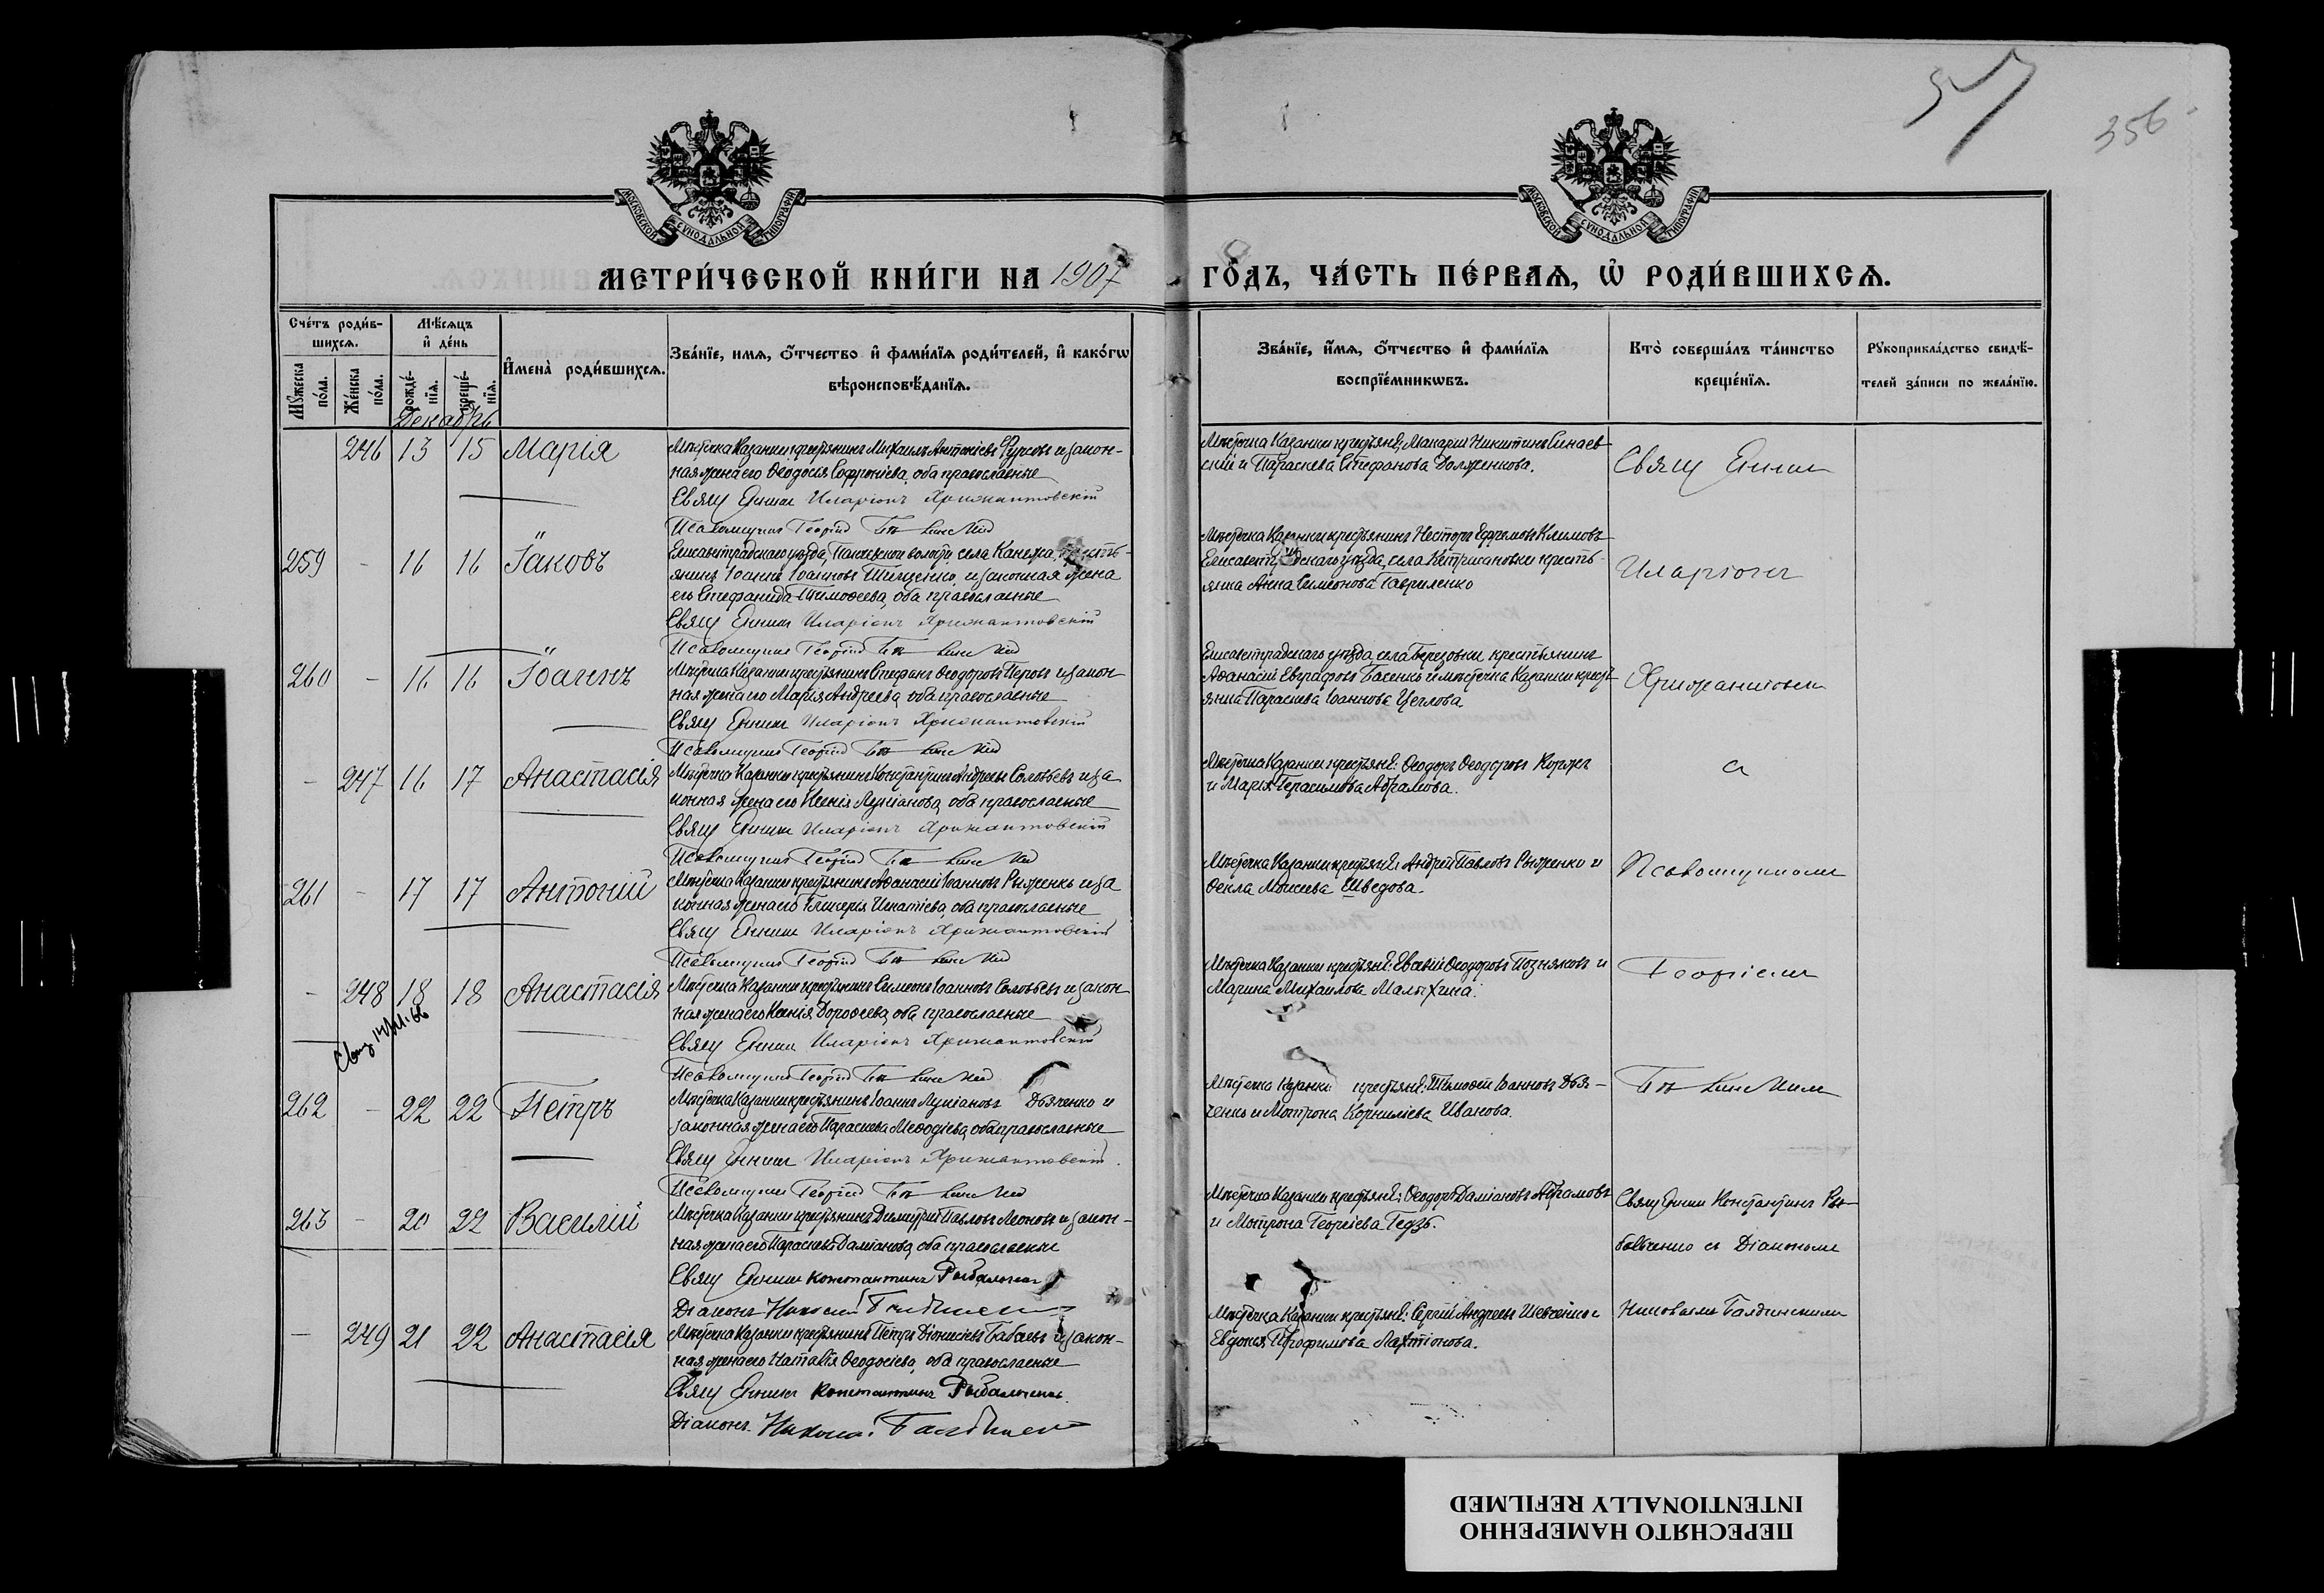 57
356
МОСКОВСКОЙ СѴНОДАЛЬНОЙ ТИПОГРАФІИ
МОСКОВСКОЙ СѴНОДАЛЬНОЙ ТИПОГРАФІИ
МЕТРИ́ЧЕСКОЙ КНИ́ГИ НА 1907 ГО́ДЪ, ЧА́СТЬ ПЕ́РВАѦ, Ѡ҆ РОДИ́ВШИХСѦ.
Сче́тъ роди́в-
шихсѧ.
Мꙋжеска по́ла.
Же́нска по́ла.
Мѣ́сѧцъ
и҆ де́нь
рожде́-
нїѧ.
креще́-
нїѧ.
И҆мена̀ роди́вшихсѧ.
Зва́нїе, имѧ, ѻ҆́тчество и҆ фами́лїѧ роди́телей, и҆ како́гѡ
вѣроисповѣ́данїѧ.
Зва́нїе, и҆́мѧ, ѻ҆́тчество и҆ фами́лїѧ
воспрїе́мникѡвъ.
Кто̀ соверша́лъ та́инство
креще́нїѧ.
Рꙋкоприкла́дство свидѣ́-
телей за́писи по жела́нїю.
Декабрь
246 13 15 Марія
Мѣстечка Казанки крестьянинъ Михаилъ Антоніевъ Фурсовъ и закон-
ная жена его Ѳеодосія Софроніева, оба православные
Свящ Еннии Иларіонъ Крижантовскій
Псаломщикъ Георгій
Мѣстечка Казанки крестьяне: Макарій Никитинъ Синаев-
скій и Параскева Стефанова Долженкова.
Свящ Еннии
259 - 16 16 Іаковъ
Елисаветградскаго уѣзда, волости, села Канежа, кресть-
янинъ Іоаннъ Іоанновъ Тищенко, и законная жена
его Стефанида Тимоѳеева, оба православные
Свящ Еннии Иларіонъ Крижантовскій
Псаломщикъ Георгій
Мѣстечка Казанки крестьянинъ Несторъ Ефремовъ Климовъ
Елисаветградскаго уѣзда, села кресть-
янка Анна Симеонова Гавриленко
Иларіонъ
260 - 16 16 Іоаннъ
Мѣстечка Казанки крестьянинъ Стефанъ Ѳеодоровъ Перовъ и закон
ная жена его Марія Андреева, оба православные
Свящ Еннии Иларіонъ Крижантовскій
Псаломщикъ Георгій
Елисаветградскаго уѣзда, села Березовки крестьянинъ
Аѳанасій Евграфовъ Басенко и мѣстечка Казанки крест-
янка Параскева Іоаннова Щеглова.
Крижантовскій
- 247 16 17 Анастасія
Мѣстечка Казанки крестьянинъ Константинъ Андреевъ Соловьевъ и за
конная жена его Ксенія Лукіанова, оба православные
Свящ Еннии Иларіонъ Крижантовскій
Псаломщикъ Георгій
Мѣстечка Казанки крестьяне: Ѳеодоръ Ѳеодоровъ Коржъ
и Марія Герасимова Абрамова.
съ
261 - 17 17 Антоній
Мѣстечка Казанки крестьянинъ Аѳанасій Іоанновъ Рыженко и за
конная жена его Гликерія Игнатіева, оба православные
Свящ Еннии Иларіонъ Крижантовскій
Псаломщикъ Георгій
Мѣстечка Казанки крестьяне: Андрей Павловъ Рыженко и
Ѳекла Моисеева Шведова.
Псаломщикомъ
- 248 18 18 Анастасія
Мѣстечка Казанки крестьянинъ Симеонъ Іоанновъ Соловьевъ и закон
ная жена его Ксенія Дороѳеева, оба православные
Свящ Еннии Иларіонъ Крижантовскій
Псаломщикъ Георгій
Мѣстечка Казанки крестьяне: Евсевій Ѳеодоровъ Позняковъ и
Марина Михаилова Малыхина.
Георгіемъ
262 - 22 22 Петръ
Мѣстечка Казанки крестьянинъ Іоаннъ Лукіановъ Дьяченко и
законная жена его Параскева Меѳодіева, оба православные
Свящ Еннии Иларіонъ Крижантовскій.
Псаломщикъ Георгій
Мѣстечка Казанки крестьяне: Тимоѳей Іоанновъ Дья-
ченко и Мотрона Корниліева Иванова.
263 - 20 22 Василій
Мѣстечка Казанки крестьянинъ Димитрій Павловъ Леоновъ и закон-
ная жена его Параскева Даміанова, оба православные
Свящ Еннии Константинъ Рыбальченко
Діаконъ Николай
Мѣстечка Казанки крестьяне: Ѳеодоръ Даміановъ Абрамовъ
и Мотрона Георгіева Гедзь.
Свящ Еннии Константинъ Ры-
бальченко съ Діакономъ
- 249 21 22 Анастасія
Мѣстечка Казанки крестьянинъ Петръ Діонисіевъ Бабаевъ и закон-
ная жена его Наталія Ѳеодосіева, оба православные
Свящ Еннии Константинъ Рыбальченко.
Діаконъ Николай
Мѣстечка Казанки крестьяне: Сергій Андреевъ Шевченко и
Евдокія Трофимова Лахтіонова.
Николаемъ Балдинскимъ
ПЕРЕСНЯТО НАМЕРЕННО
INTENTIONALLY REFILMED